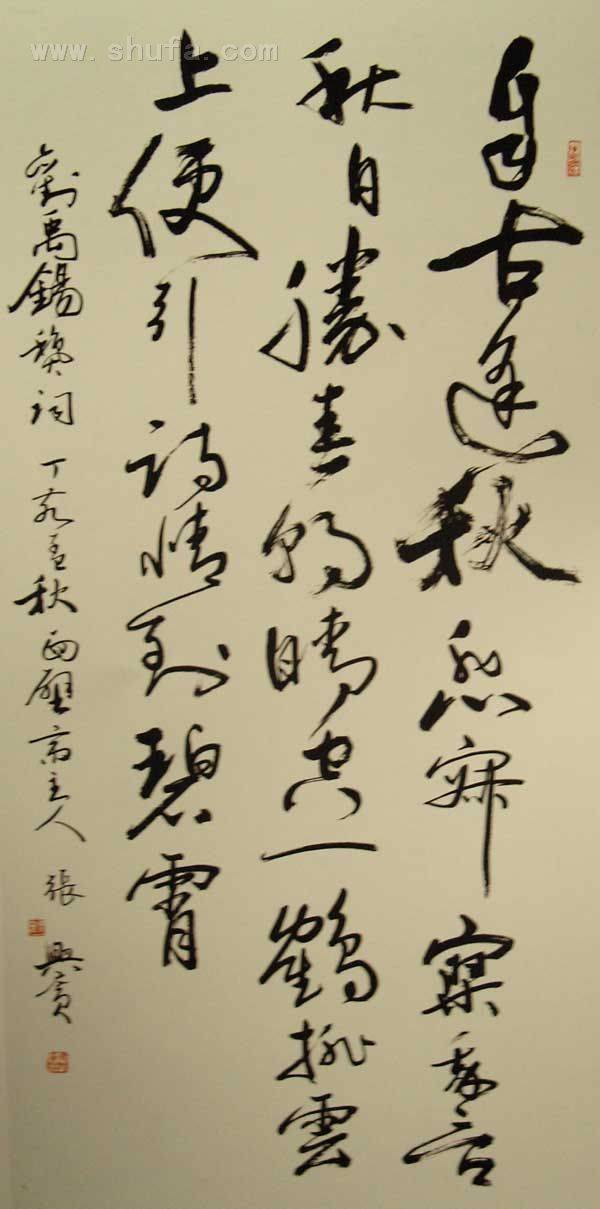 www.shufa.com
自古逢秋悲寂寥我言
秋日勝春朝晴空一鶴排雲
上便引詩情到碧霄
劉禹錫秋詞 丁亥孟秋 面壁齋主人 張興賓